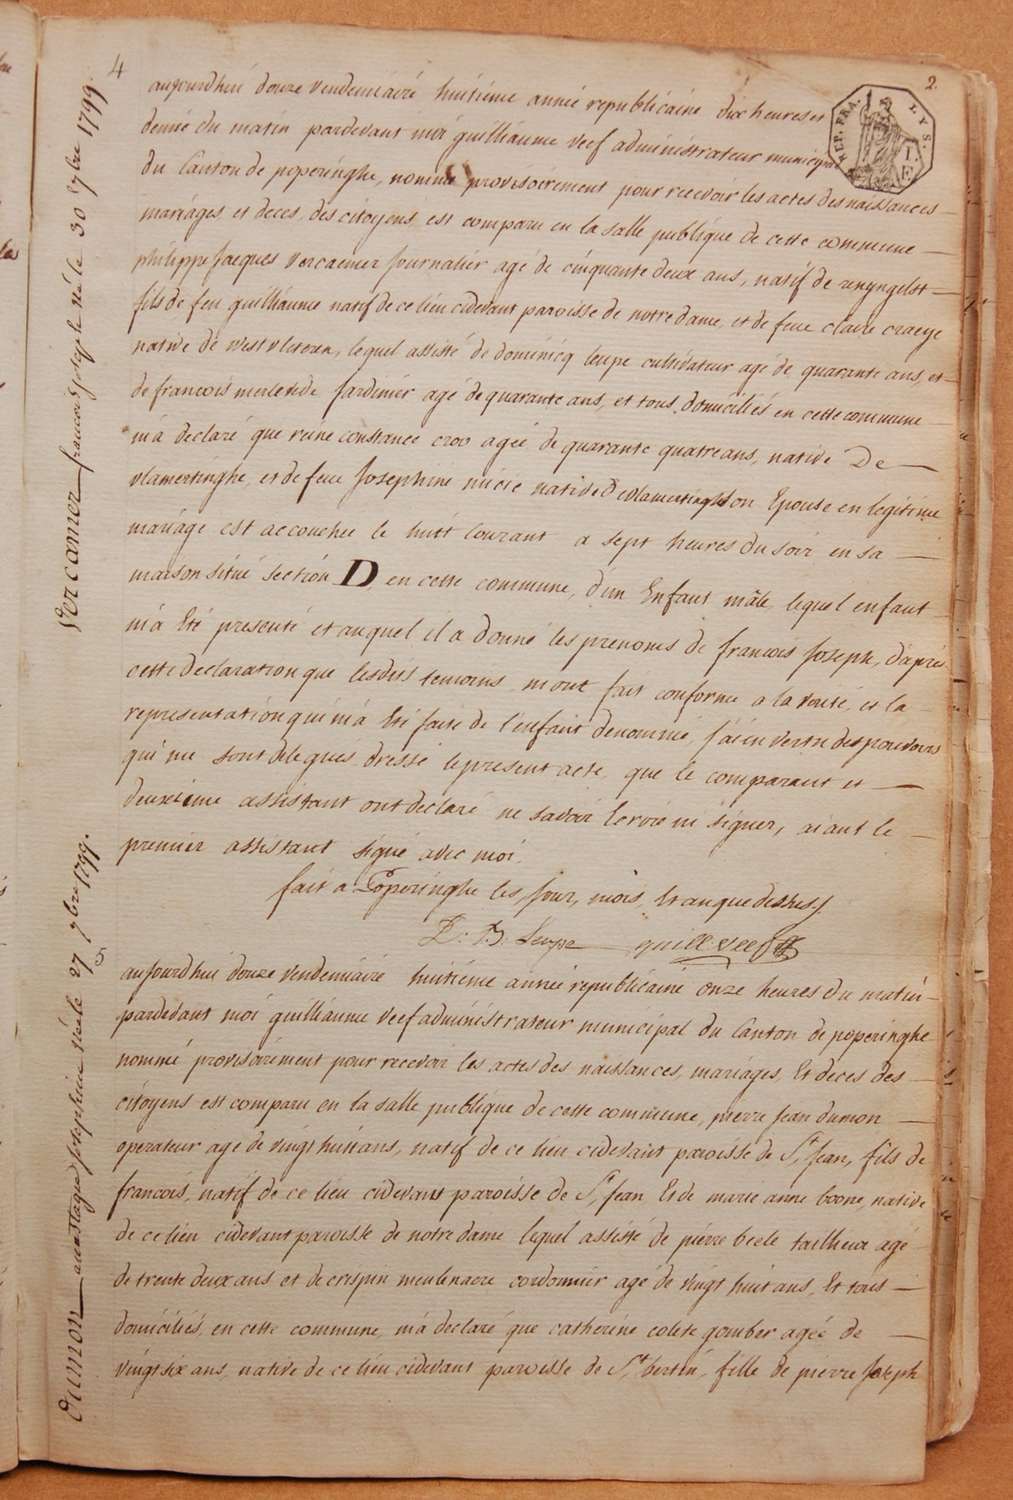 4
2
REP. FRA.
LYS.
Vercamer francois joseph né le 30 7bre 1799.
aujourdhui douze vendemiaire huitiéme année republicaine dix heures et
demie du matin pardevant moi guilliaume veef administrateur municipal
du Canton de poperinghe, nommé provisoirement pour recevoir les actes des naissances
mariages et deces des citoyens est comparu en la salle publique de cette commune
philippe Jacques vercaemer Journalier agé de cinquante deux ans, natif de renyngelst
fils de feu guilliaume natif de ce lieu cidevant paroisse de notre dame, et de feue claire craeye
native de westvleteren, lequel assisté de dominicq leupe cultivateur agé de quarante ans, et
de francois merlevede Jardinier agé de quarante ans, et tous domiciliés en cette commune
m'a declaré que reine constance croo agée de quarante quatre ans, native De
vlamertinghe, et de feue Josephine native De vlamertinghe son Epouse en legitime
mariage est accouchée le huit courant a sept heures du soir en sa
maison situé section D, en cette commune, d'un Enfant mâle, lequel enfant
m'a Eté presenté et auquel il a donné les prenoms de francois Joseph, d'aprés
cette declaration que lesdits temoins m'ont fait conforme a la verité, et la
representation qui m'a Eté faite de l'enfant denommé, J'ai en vertu des pouvoirs
qui me sont delegués dressé le present acte que le comparant et
deuxieme assistant ont declaré ne savoir Ecrire ni signer, aiant le
premier assistant signé avec moi.
fait a Poperinghe les Jour, mois, et an que dessus
D. B. Leupe guill veef
Dumon anastasie Josephine née le 27 7bre 1799.
5
aujourdhui douze vendemiaire huitiéme année republicaine onze heures du matin
pardevant moi guilliaume veef administrateur municipal du Canton de poperinghe
nommé provisoirement pour recevoir les actes des naissances, mariages, Et deces des
citoyens est comparu en la salle publique de cette commune, pierre Jean dumon
operateur agé de vingt huit ans, natif de ce lieu cidevant paroisse de St. Jean, fils de
francois, natif de ce lieu cidevant paroisse de St. Jean Et de marie anne boone, native
de ce lieu cidevant paroisse de notre dame lequel assisté de pierre beele tailleur agé
de trente deux ans et de crispin meulenaere cordonnier agé de vingt huit ans, Et tous
domiciliés, en cette commune, m'a declaré que catherine colete gomber agée de
vingt six ans, native de ce lieu cidevant paroisse de St. bertin, fille de pierre Joseph